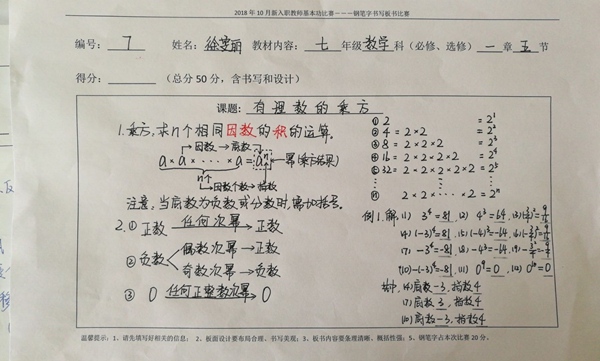 2018 年 10 月新入职教师基本功比赛———钢笔字书写板书比赛
编号： 7 姓名：徐雯丽 教材内容： 七 年级 数学 科（必修、选修） 一 章 五 节
得分： （总分 50 分，含书写和设计）
课题：有理数的乘方
1.乘方，求n个相同因数的积的运算。
因数→底数
a×a×····×a=aⁿ→幂(乘方结果)
n个
因数个数→指数
注意：当底数为负数或分数时，需加括号。
2.①正数 任何次幂→正数
②负数 偶数次幂→正数
奇数次幂→负数
③ 0 任何正整数次幂→0
① 2 =2¹
② 4=2×2 =2²
③ 8=2×2×2 =2³
④ 16=2×2×2×2 =2⁴
⑤ 32=2×2×2×2×2 =2⁵
⋮ ⋮
ⓝ 2×2×····×2=2ⁿ
例1.解：(1) 3⁴=81 (2) 4³=64
(4) (-3)⁴=81 (5) (-4)³=-64
(7) -3⁴=-81 (8) -4³=-64
(10) -(-3)⁴=-81 (11) 0⁹=0 (12) 0¹⁰=0
其中，(4)底数-3，指数4
(7) 底数3，指数4
(10) 底数-3，指数4
温馨提示：1、请先填写好相关的信息； 2、板面设计要布局合理、书写美观；3、板书内容要条理清晰、概括性强；5、钢笔字占本次比赛 20 分。